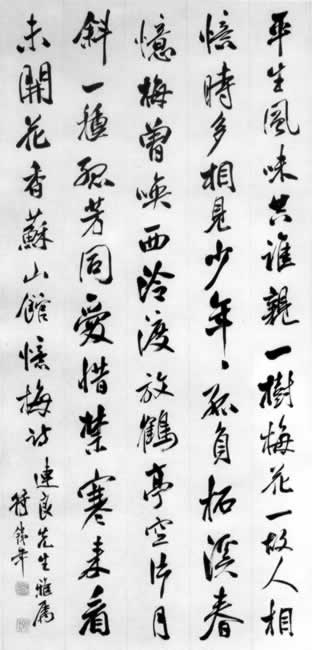 平生風味共誰親一樹梅花一故人相
憶時多相見少年〻孤負柘溪春
憶梅曾喚西泠渡放鶴亭空片月
斜一種孤芳同愛惜禁寒來看
未開花香蘇山館憶梅詩
連良先生雅屬
符鐵年